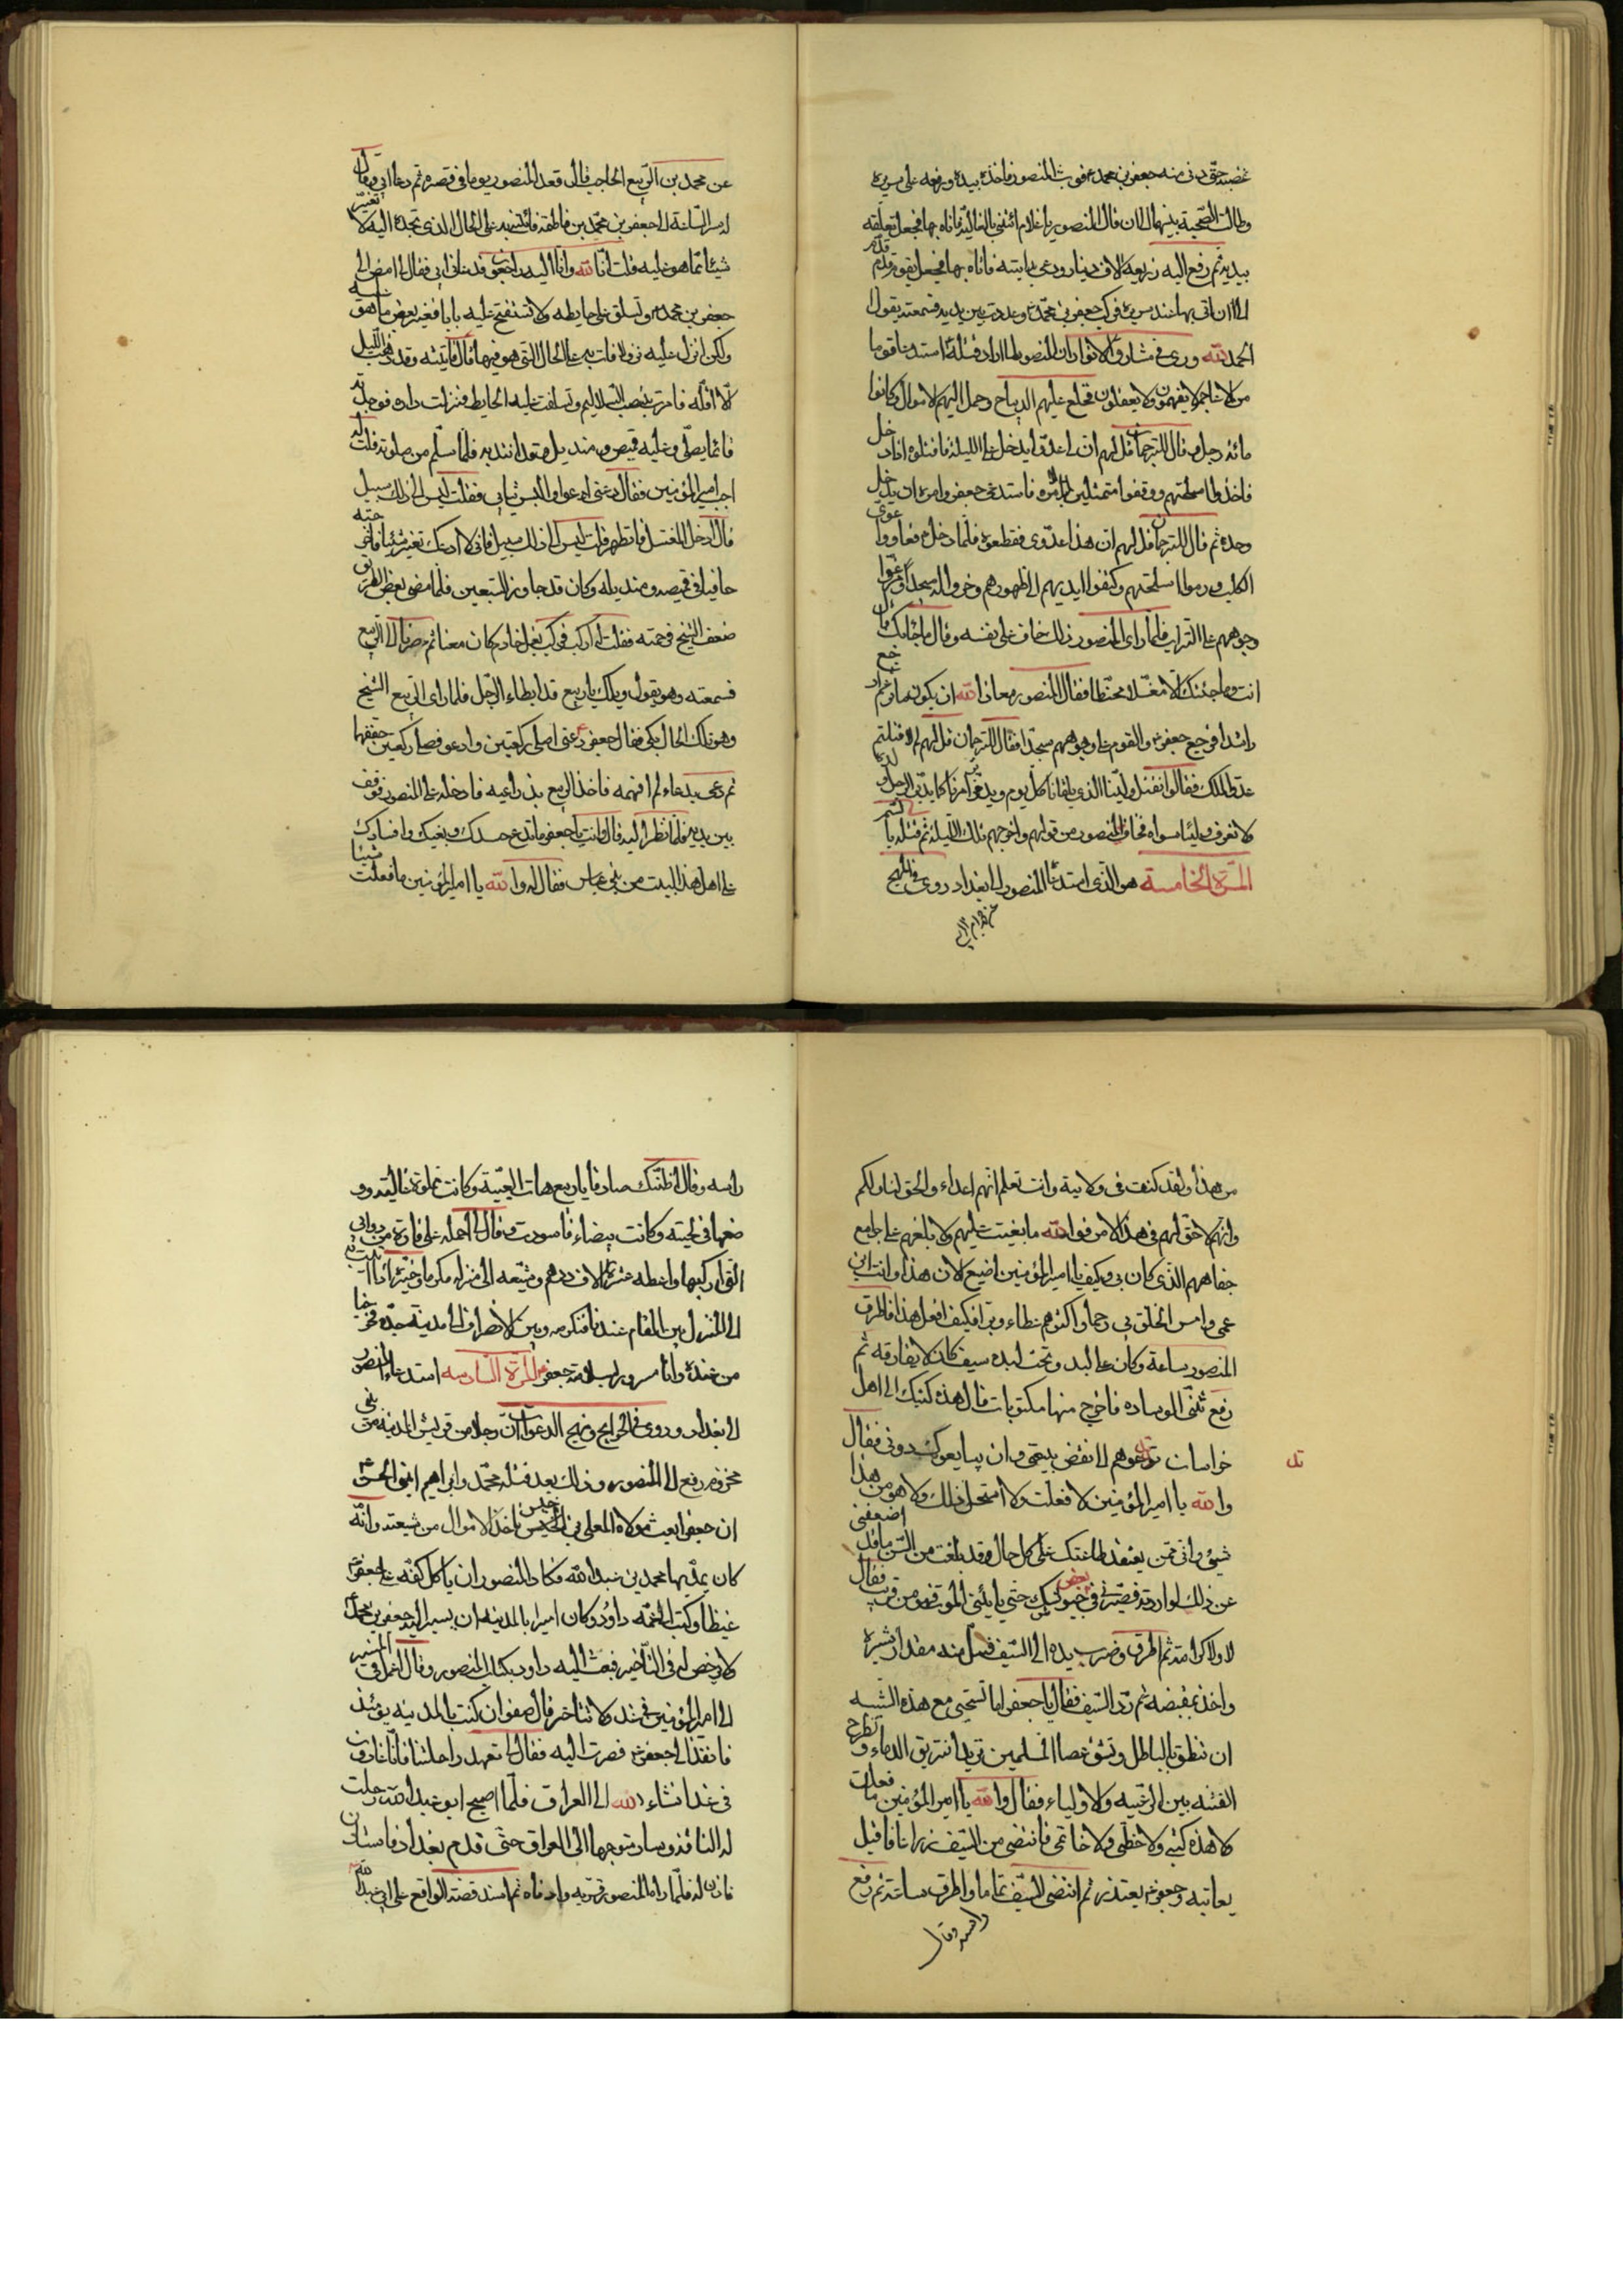 غضبه حتى دنى منه جعفر بن محمد فوثب المنصور فاخذ بيده ورفعه على سريره
وطالت الصحبة بينهما الى ان قال المنصور يا غلام ائتني بالغالية فاتاه بها فجعل يغلفه
بيديه ثم رفع اليه اربعة الاف دينار ودعى بدابته فاتاه بها فجعل يقول قدم قدم
الى ان اتى بها عند سريره فركب جعفر بن محمد وعدوت بين يديه فسمعته يقول
الحمد لله وروى في مشارق الانوار ان المنصور لما اراد قتله استدعا قوما
من الاعاجم لا يفهمون ولا يعقلون فخلع عليهم الديباج وحمل اليهم الاموال وكانوا
مائة رجل وقال للترجمان قل لهم ان لي عدوا يدخل علي الليلة فاقتلوه اذا دخل
فاخذوا اسلحتهم ووقفوا متمثلين لامره فاستدعى جعفر وامره ان يدخل
وحده ثم قال للترجمان قل لهم ان هذا عدوي فقطعوه فلما دخل تعاووا عوى
الكلب ورموا اسلحتهم وكتفوا ايديهم الى ظهورهم وخروا له سجدا ومرغوا
وجوههم على التراب فلما راى المنصور ذلك خاف على نفسه وقال ما جاء بك قال
انت وما جئتك الا مغتسلا محنطا فقال المنصور معاذ الله ان يكون ما تزعم ارجع
راشدا فرجع جعفر والقوم على وجوههم سجدا فقال للترجمان قل لهم لم لا قتلتم
عدو الملك فقالوا نقتل ولينا الذي يلقانا كل يوم ويدبر امرنا كما يدبر الرجل ولده
ولا نعرف وليا سواه فخاف المنصور من قولهم واخرجهم تلك الليلة ثم قتله بالسم
المرة الخامسة هو الذي استدعا المنصور الى بغداد روى في المهج
عن محمد بن الربيع الحاجب قال قعد المنصور يوما في قصره ثم دعا ابي وقال
له سر الساعة الى جعفر بن محمد بن فاطمة فائتني به على الحال الذي تجده اليه لا تغير
شيئا مما هو عليه قلت انا لله وانا اليه راجعون قد دعاني ابي فقال لي امض الى
جعفر بن محمد وتسلق على حايطه ولا تستفتح عليه بابا فيغير بعض ما هو عليه
ولكن انزل عليه نزولا فات به على الحال التي هو فيها قال فاتيته وقد ذهب الليل
الا اقله فامرت بنصب السلاليم وتسلقت عليه الحايط فنزلت داره فوجدته
قائما يصلي وعليه قميص ومنديل قد اتزر به فلما سلم من صلوته قلت له
اجب امير المؤمنين فقال دعني ادعو والبس ثيابي فقلت ليس الى ذلك سبيل
قال ادخل المغتسل فاتطهر قلت ليس الى ذلك سبيل فاني لا ادعك تغير شيئا فاخرجته
حافيا في قميصه ومنديله وكان قد جاوز السبعين فلما مضى بعض الطريق
ضعف الشيخ فرحمته فقلت له اركب فركب بغل خادم كان معنا ثم صرنا الى الربيع
فسمعته وهو يقول ويلك يا ربيع قد ابطاء الرجل فلما راى الربيع الشيخ
وهو بتلك الحال بكى فقال جعفر دعني اصلي ركعتين وادعو فصلى ركعتين خففها
ثم دعى بدعاء لم افهمه فاخذ الربيع بذراعيه فادخله على المنصور فوقف
بين يديه فلما نظر اليه قال وانت يا جعفر ما تدع حسدك وبغيك وافسادك
على اهل هذا البيت من بني عباس فقال له والله يا امير المؤمنين ما فعلت شيئا
من هذا ولقد كنت في ولاية وانت تعلم انهم اعداء والحق لنا ولكم
وانهم لا حق لهم في هذا الامر فوالله ما بغيت عليهم ولا بلغهم على جامع
جفاهم الذي كان بي وكيف يا امير المؤمنين اصنع الان هذا وانت ابن
عمي وامس الخلق بي رحما واكثرهم عطاء وبرا فكيف افعل هذا فاطرق
المنصور ساعة وكان على لبد وتحت لبده سيف كان لا يفارقه ثم
رفع ثني الوساده فاخرج منها مكتوبات قال هذه كتبك الى اهل
خراسان تدعوهم الى نقض بيعتي وان يبايعوك دوني فقال
والله يا امير المؤمنين لا فعلت ولا استحل ذلك ولا هو من هذا
شيئ واني ممن يعتقد طاعتك على كل حال وقد بلغت من السن ما قد اضعفني
عن ذلك لو اردته فصيرني في بعض حبوسك حتى ياتيني الموت فهو من قريب فقال
لا ولا كرامة ثم اطرق وضرب يده الى السيف فسل منه مقدار شبر
واخذ بمقبضه ثم رد السيف فقال يا جعفر اما تستحي مع هذه الشيبه
ان تنطق بالباطل وتشق عصا المسلمين تريد ان تريق الدماء وتطرح
الفتنه بين الرعيه والاولياء فقال والله يا امير المؤمنين ما فعلت
ولا هذه كتبي ولا خطي ولا خاتمي فانتضى من السيف ذراعا فاقبل
يعاتبه وجعفر يعتذر ثم انتضى السيف تماما واطرق ساعة ثم رفع
راسه وقال
راسه وقال اظنك صادقا يا ربيع هات العيبة وكانت مملوة غاليه
ضعها في لحيته وكانت بيضاء فاسودت وقال لي احمله على فاره من دوابي
التي اركبها واعطه عشرة الاف درهم وشيعه الى منزله مكرما وخيره اذا اتيت به
الى المنزل بين المقام عندنا فنكرمه وبين الانصراف الى مدينة جده فخرجنا
من عنده وانا مسرور بسلامة جعفر المرة السادسه استدعاه المنصور
الى بغداد وروى في الخرايج ومهج الدعوات ان رجلا من قريش المدينه من بني
مخزوم رفع الى المنصور وذلك بعد قتله محمد وابراهيم ابني الحسن
ان جعفرا بعث مولاه المعلى بن خنيس ياخذ الاموال من شيعته وانه
كان يمد بها محمد بن عبد الله فكاد المنصور ان ياكل كفه على جعفر
غيظا وكتب الى عمه داود وكان اميرا بالمدينه ان يسير اليه جعفر بن محمد
لا يرخص له في التاخير فبعث اليه داود بكتاب المنصور وقال اعمل في المسير
الى امير المؤمنين في غد ولا تتاخر قال صفوان كنت بالمدينه يومئذ
فانفذ الي جعفر فصرت اليه فقال لي تعهد راحلتنا فانا غادون
في غد انشاء الله الى العراق فلما اصبح ابو عبد الله رحلت
له الناقة وسار متوجها الى العراق حتى قدم بغداد فاستاذن
فاذن له فلما راه المنصور قربه وادناه ثم اسند قصة الواقع على ابي عبد الله